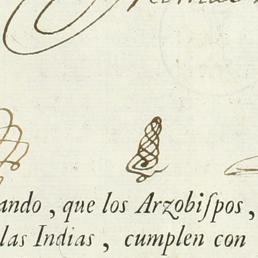 ando, que los Arzobiſpos,
las Indias, cumplen con